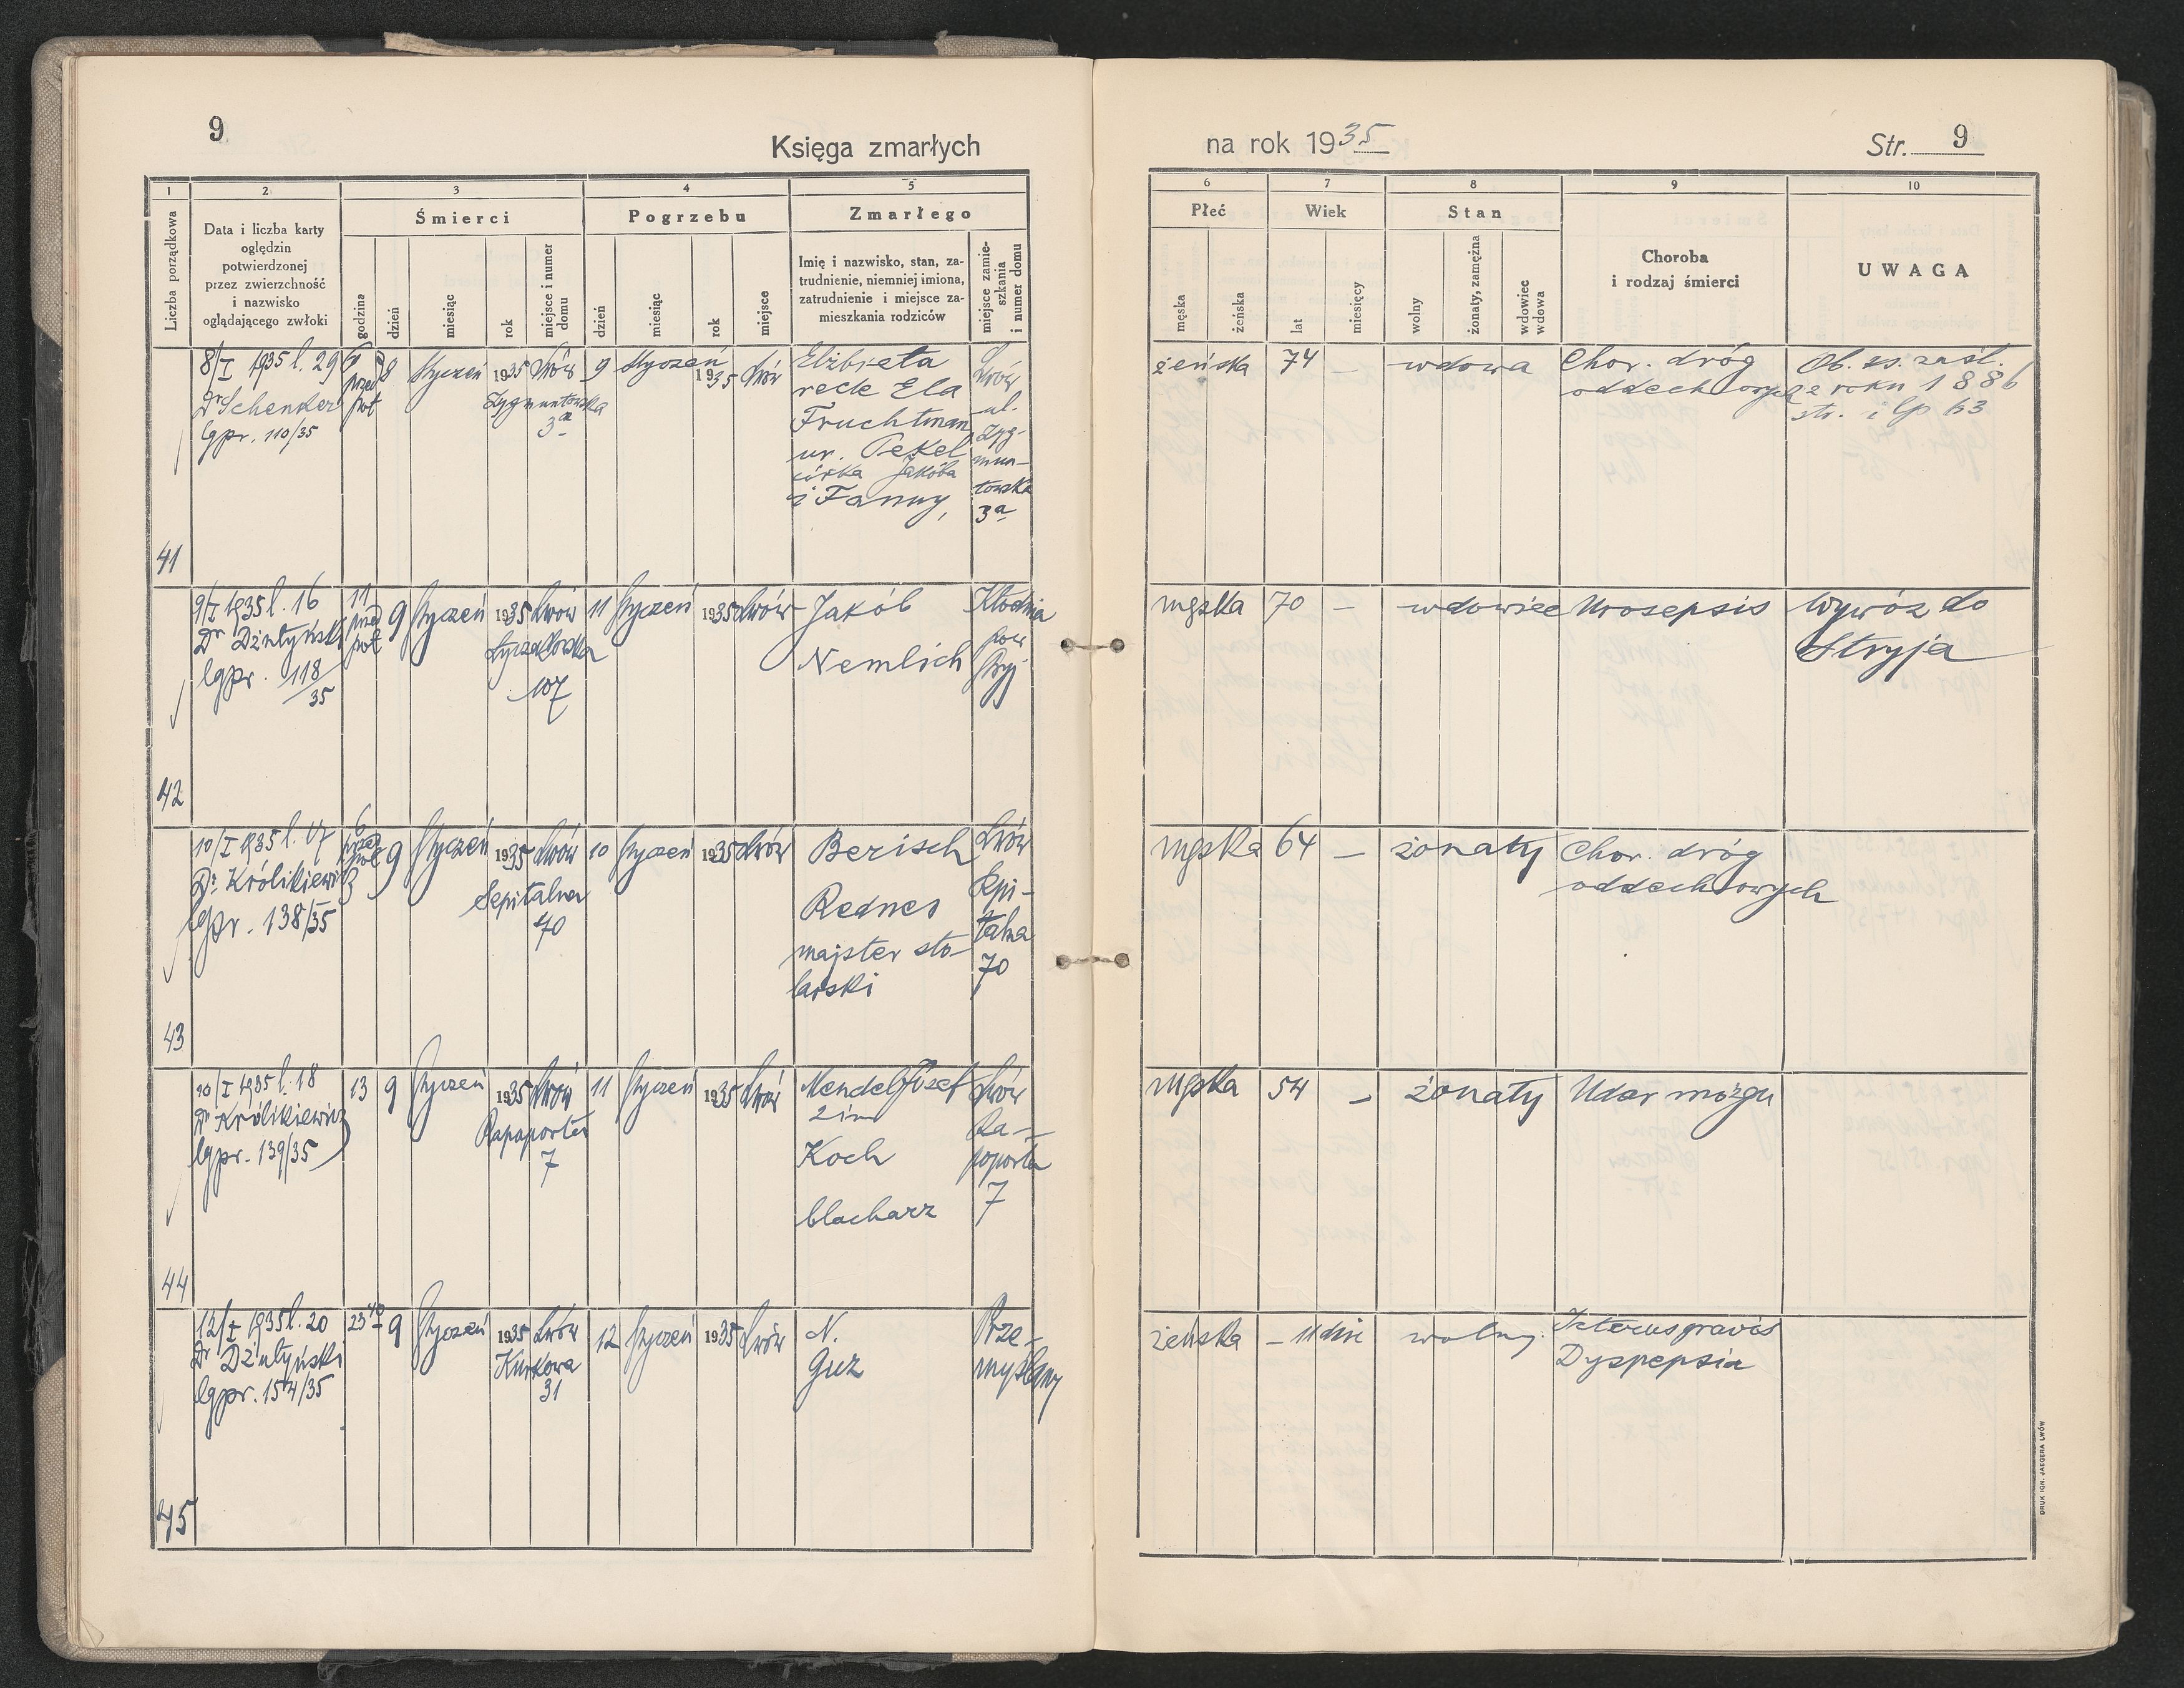 9
Księga zmarłych
na rok 1935
Str. 9
1
2
3
4
5
6
7
8
9
10
Liczba porządkowa
Data i liczba karty
oględzin
potwierdzonej
przez zwierzchność
i nazwisko
oglądającego zwłoki
Śmierci
godzina
dzień
miesiąc
rok
miejsce i numer
domu
Pogrzebu
dzień
miesiąc
rok
miejsce
Zmarłego
Imię i nazwisko, stan, za-
trudnienie, niemniej imiona,
zatrudnienie i miejsce za-
mieszkania rodziców
miejsce zamie-
szkania
i numer domu
Płeć
męska
żeńska
Wiek
lat
miesięcy
Stan
wolny
żonaty, zamężna
wdowiec
wdowa
Choroba
i rodzaj śmierci
UWAGA
41
8/I 1935 l. 29
Dr Schenker
lgpr. 110/35
przed
poł
8
Styczeń
1935
Lwów
Zygmuntowska
3a
9
Styczeń
1935
Lwów
Elżbieta
recte Ela
Fruchtman
ur. Pekel
córka Jakóba
i Fanny,
Lwów
ul.
Zyg-
mun-
towska
3a
żeńska
74
—
wdowa
Chor. dróg
oddechowych
Ob. ks. zaśl.
z roku 1886
str. i lp 63
42
9/I 1935 l. 16
Dr Dżułyński
lgpr. 118/35
11
przed
poł
9
Styczeń
1935
Lwów
Łyczakowska
107
11
Styczeń
1935
Lwów
Jakób
Nemlich
Kłodnia
pow
Stryj
męska
70
—
wdowiec
Urosepsis
Wywóz do
Stryja
43
10/I 1935 l. 17
Dr. Królikiewicz
lgpr. 138/35
6
przed
poł
9
Styczeń
1935
Lwów
Szpitalna
70
10
Styczeń
1935
Lwów
Berisch
Rednes
majster sto-
larski
Lwów
Szpi-
talna
70
męska
64
—
żonaty
Chor. dróg
oddechowych
44
10/I 1935 l. 18
Dr Królikiewicz
lgpr. 139/35
13
9
Styczeń
1935
Lwów
Rapaporta
7
11
Styczeń
1935
Lwów
Mendel Józef
2 im
Koch
blacharz
Lwów
Ra-
poporta
7
męska
54
—
żonaty
Udar mózgu
45
12/I 1935 l. 20
Dr Dżułyński
lgpr. 154/35
23 40
9
Styczeń
1935
Lwów
Kurkowa
31
12
Styczeń
1935
Lwów
N.
Guz
Prze-
myślany
żeńska
— 11 dni
wolny.
Icterus gravis
Dyspepsia
DRUK IGN. JAEGERA LWÓW